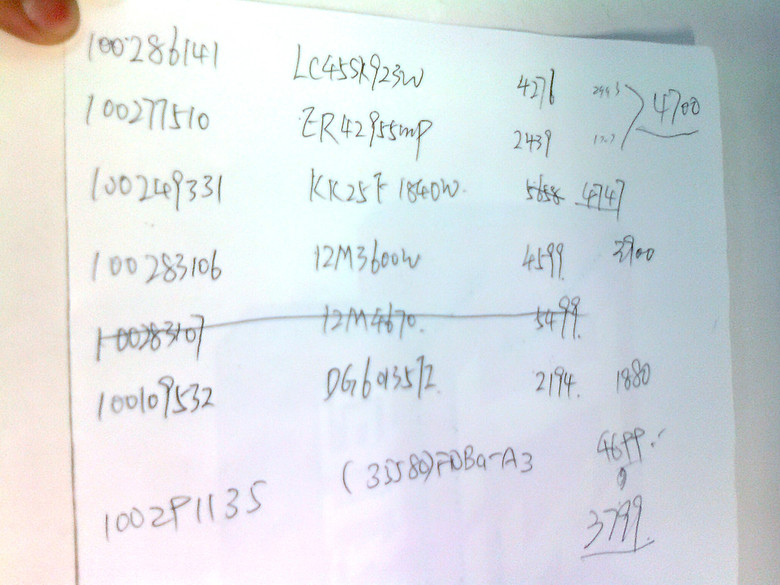 100286141 LC45SK923W 4276 2993 4700
100277510 ER42955mp 2439
100249331 KK25F1840W. 5658 4747
100283106 12M3600W 4599 3900
100283107 12M4670. 5499
100109532 DG6013572 2194. 1880
(35580) A3 4699.-
1002P1135
3799.